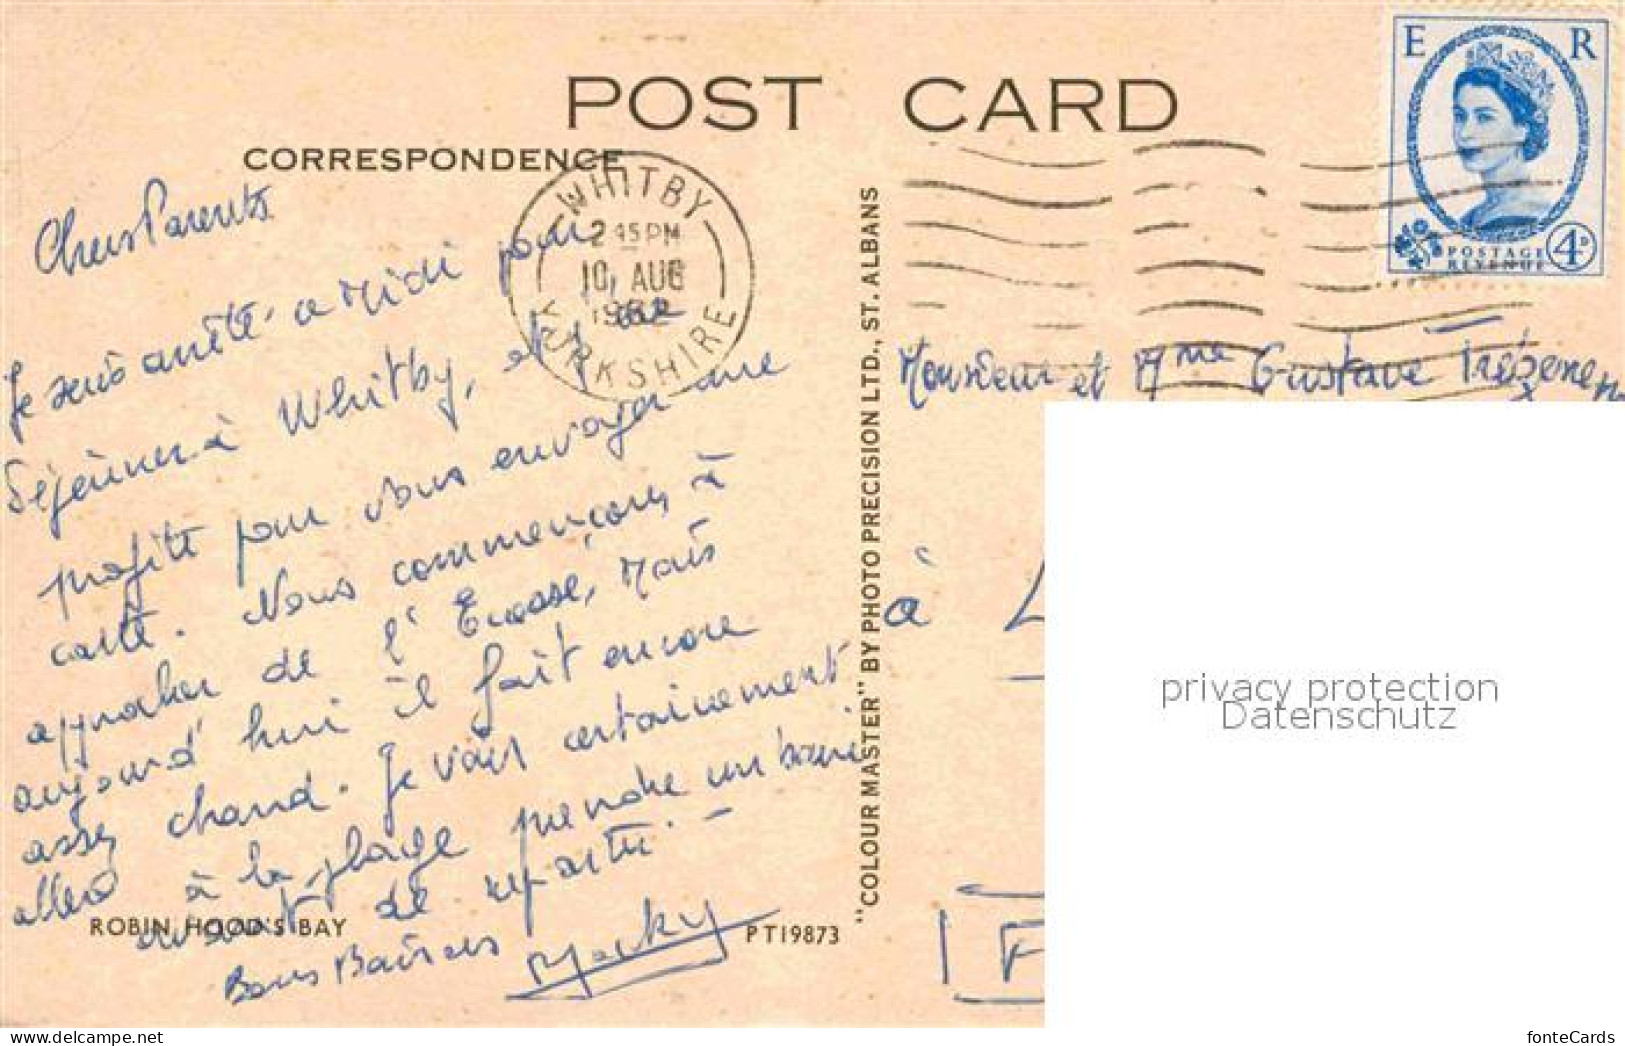 POST CARD
CORRESPONDENCE
WHITBY
2 45 PM
10 AUG
1962
YORKSHIRE
E R
POSTAGE
REVENUE
4D
Chers Parents
Je suis arrêté a Midi pour
Déjeuner à Whitby, et j'en
profite pour vous envoyer une
carte. Nous commençons à
approcher de l'Ecosse, Mais
aujourd'hui il fait encore
assez chaud. Je vais certainement
aller à la plage prendre un bain
avant de repartir.
Bons Baisers
ROBIN HOOD'S BAY
PT19873
"COLOUR MASTER" BY PHOTO PRECISION LTD., ST. ALBANS
Monsieur et Mme Gustave
à L
F
privacy protection
Datenschutz
www.delcampe.net
fonteCards